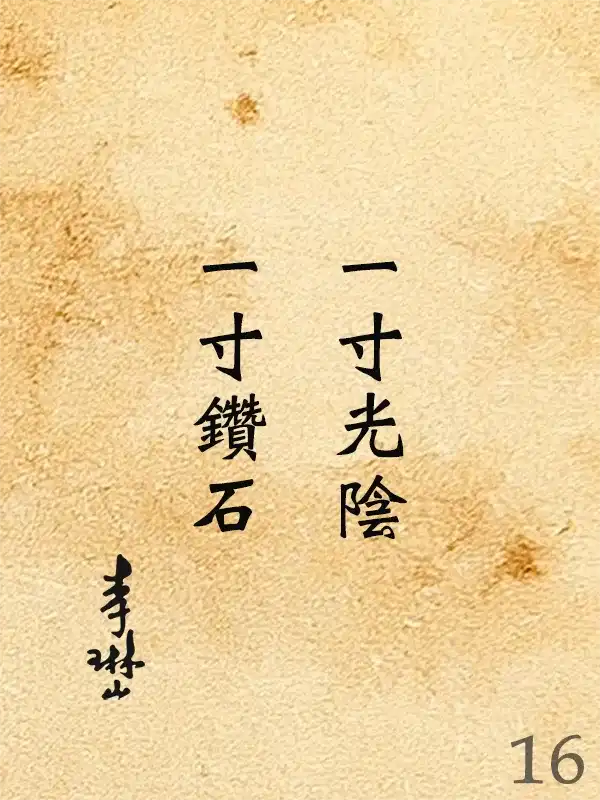 一寸光陰
一寸鑽石
李琳山
16